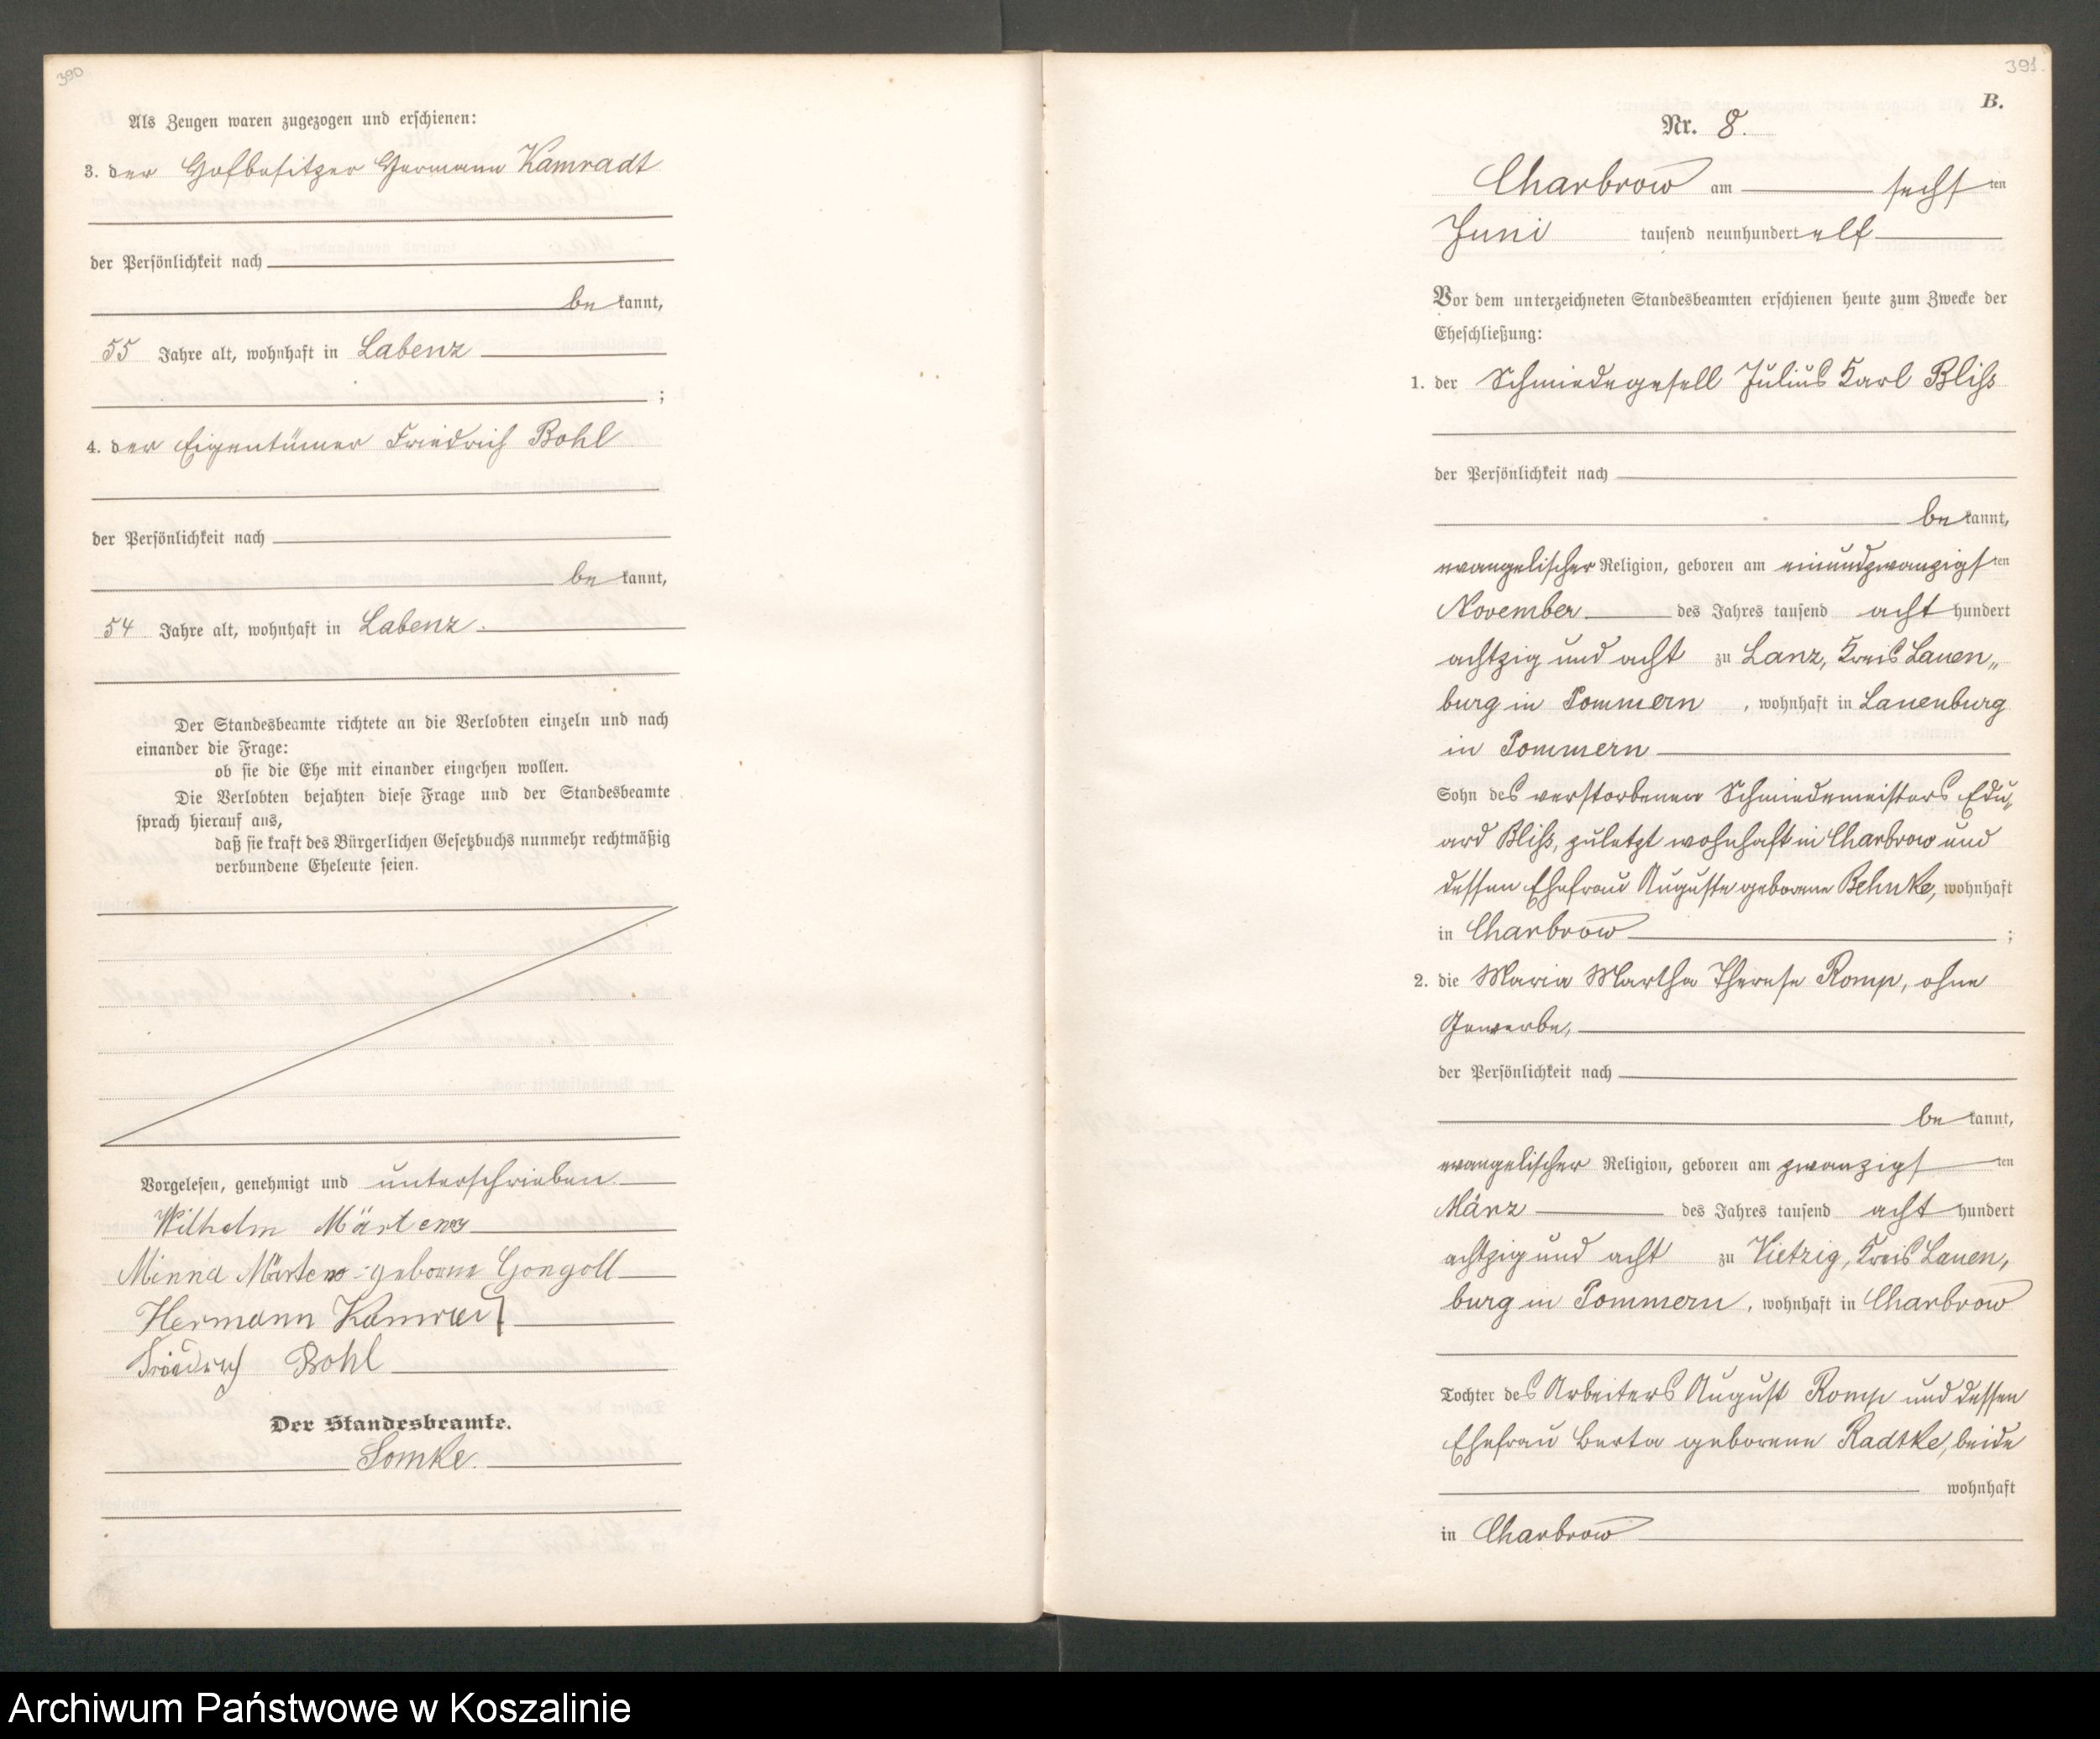 390
Als Zeugen waren zugezogen und erschienen:
3. der Hofbesitzer Hermann Kamradt
der Persönlichkeit nach
be kannt,
55 Jahre alt, wohnhaft in Labenz
;
4. der Eigentümer Friedrich Bohl
der Persönlichkeit nach
be kannt,
54 Jahre alt, wohnhaft in Labenz.
Der Standesbeamte richtete an die Verlobten einzeln und nach
einander die Frage:
ob sie die Ehe mit einander eingehen wollen.
Die Verlobten bejahten diese Frage und der Standesbeamte
sprach hierauf aus,
daß sie kraft des Bürgerlichen Gesetzbuchs nunmehr rechtmäßig
verbundene Eheleute seien.
Vorgelesen, genehmigt und unterschrieben
Wilhelm Märtens
Minna Märtens geborne Gongoll
Hermann Kamradt
Friedrich Bohl
Der Standesbeamte.
Lomke.
391.
B.
Nr. 8.
Charbrow am sechsten
Juni tausend neunhundert elf
Vor dem unterzeichneten Standesbeamten erschienen heute zum Zwecke der
Eheschließung:
1. der Schmiedegesell Julius Karl Bliß
der Persönlichkeit nach
be kannt,
evangelischer Religion, geboren am einundzwanzigsten
November des Jahres tausend acht hundert
achtzig und acht zu Lanz, Kreis Lauen„
burg in Pommern, wohnhaft in Lauenburg
in Pommern
Sohn des verstorbenen Schmiedemeisters Edu„
ard Bliß, zuletzt wohnhaft in Charbrow und
dessen Ehefrau Auguste geborene Behnke, wohnhaft
in Charbrow ;
2. die Maria Martha Therese Romp, ohne
Gewerbe,
der Persönlichkeit nach
be kannt,
evangelischer Religion, geboren am zwanzigsten
März des Jahres tausend acht hundert
achtzig und acht zu Vietzig, Kreis Lauen„
burg in Pommern, wohnhaft in Charbrow
Tochter des Arbeiters August Romp und dessen
Ehefrau Berta geborene Radtke, beide
wohnhaft
in Charbrow
Archiwum Państwowe w Koszalinie